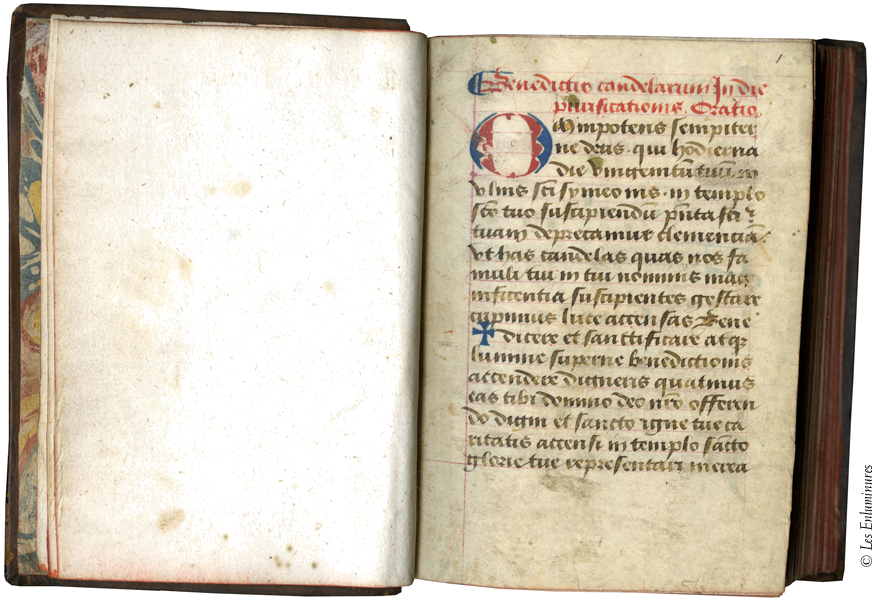 1
Benedictio candelarum In die
purificationis. Oratio.
Omnipotens sempiter
ne deus qui hodierna
die vnigenitū tuū in
vlnis scī symeonis in templo
scō tuo suscipiendū pñtasti
tuam deprecamur clemenciā
vt has candelas quas nos fa
muli tui in tui nominis mag
nificentia suscipientes gestare
cupimus luce accensas Bene
dicere et sanctificare atqz
lumine superne benedictionis
accendere digneris quatinus
eas tibi domino deo nr̄o offeren
do digni et sancto igne tue ca
ritatis accensi in templo sancto
glorie tue representari merea
© Les Enluminures